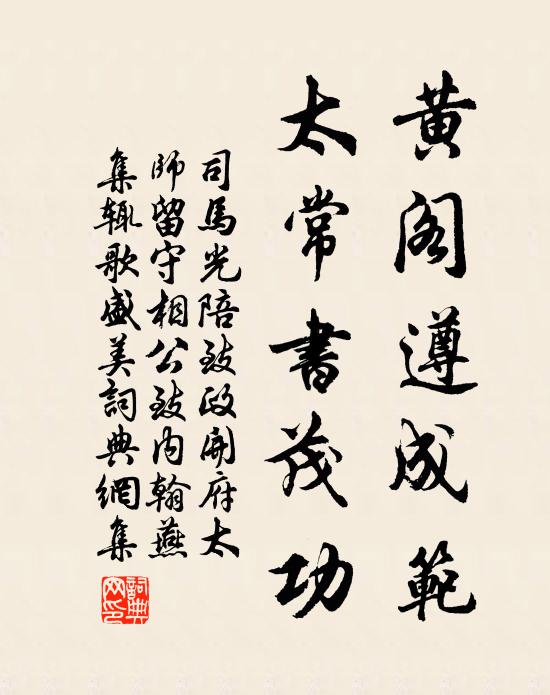 黃閣遵成範
太常書茂功
司馬光陪致政開府太
師留守相公致內翰燕
集輒歌盛美詞典網集
詞典網印